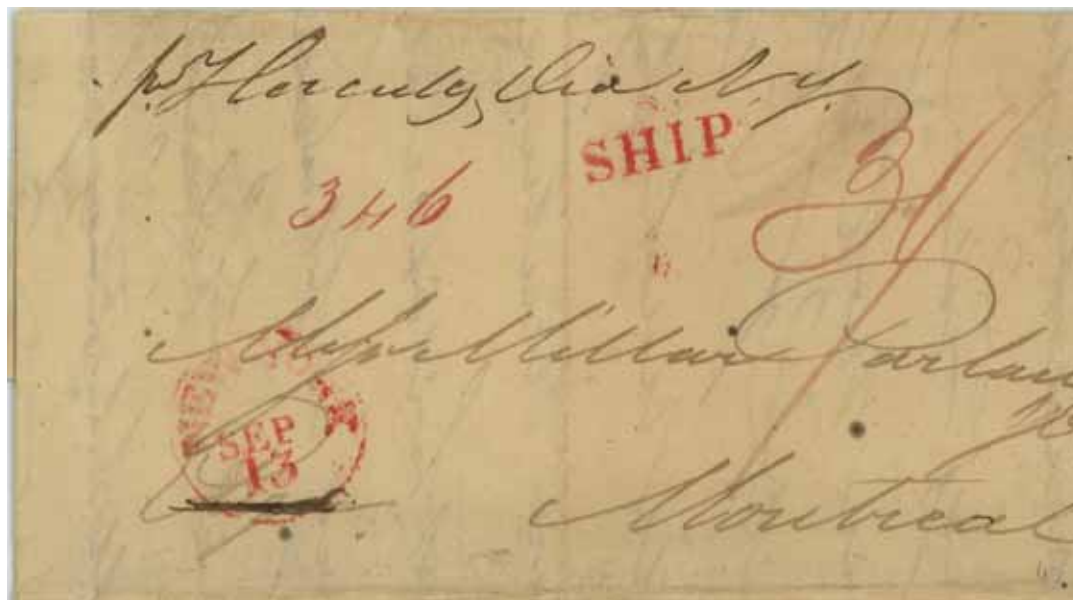 pr Hercules, Via N.Y.
SHIP
346
3/
Messrs Millar Parlan
NEW YORK
SEP
13
Montreal